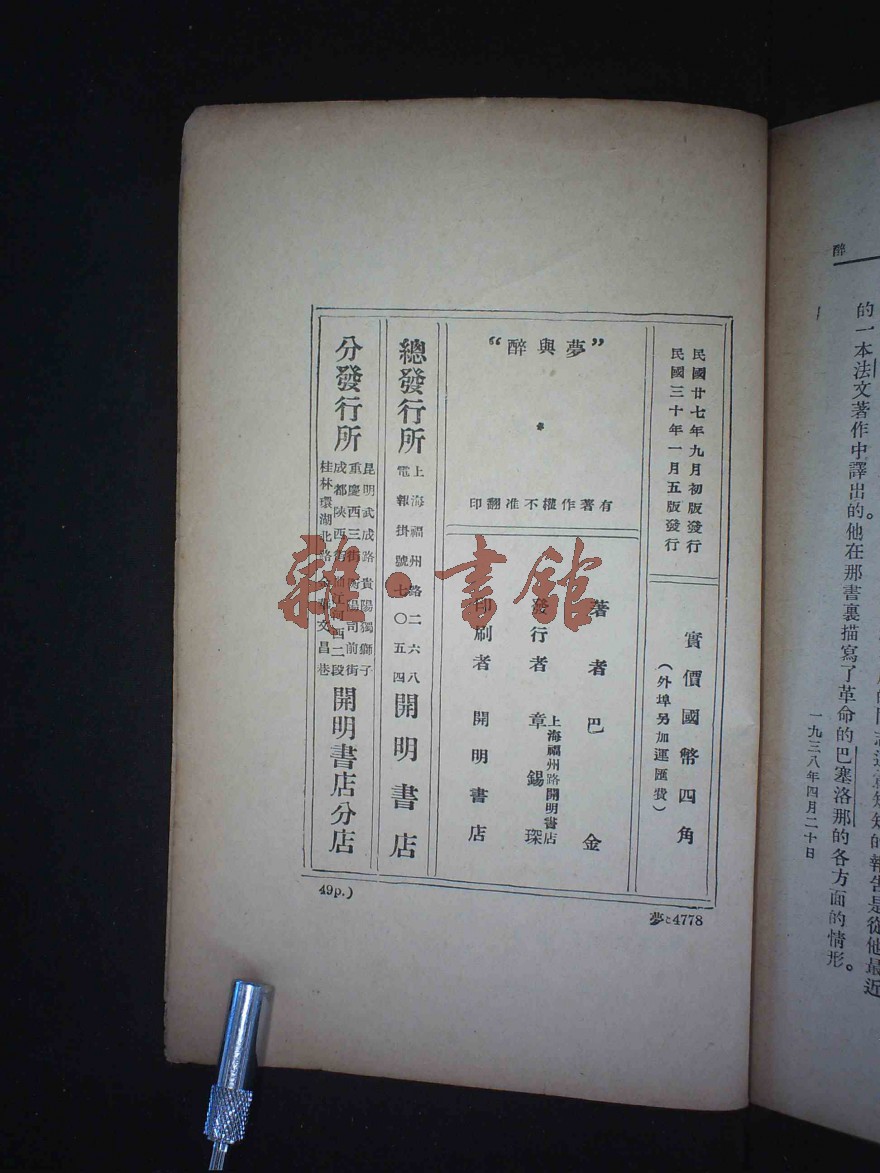 民國廿七年九月初版發行
民國三十年一月五版發行
實價國幣四角
(外埠另加運匯費)
“夢與醉”
有著作權不准翻印
著者 巴金
發行者 章錫琛
上海福州路開明書店
印刷者 開明書店
總發行所
上海福州路二六八
電報掛號七〇五四
開明書店
分發行所
昆明武成路 貴陽獨獅子
重慶西三街 衡陽司前街
成都陝西街 曲江河西二段
桂林環湖北路 金華文昌巷
開明書店分店
49p.)
夢と4778
雜·書館
醉
的一本法文著作中譯出的。他在那書裏描寫了革命的巴塞洛那的各方面的情形。
一九三八年四月二十日